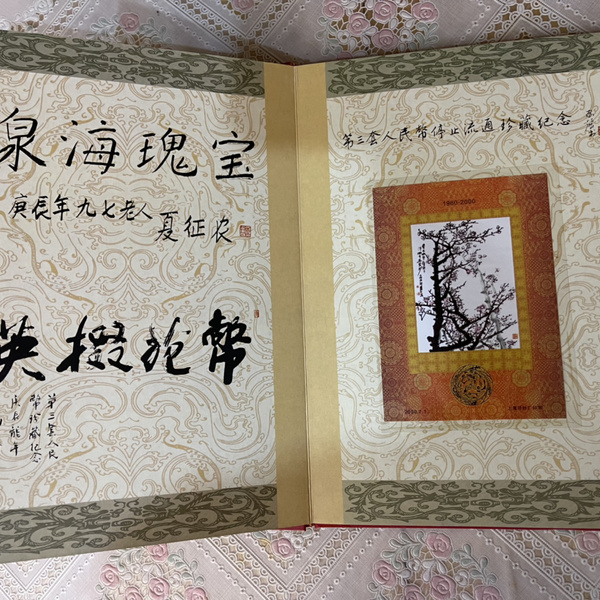 泉海瑰宝
庚辰年九七老人
夏征农
幣苑掇英
第三套人民
幣珍藏纪念
庚辰龍年
第三套人民幣停止流通珍藏纪念
1960-2000